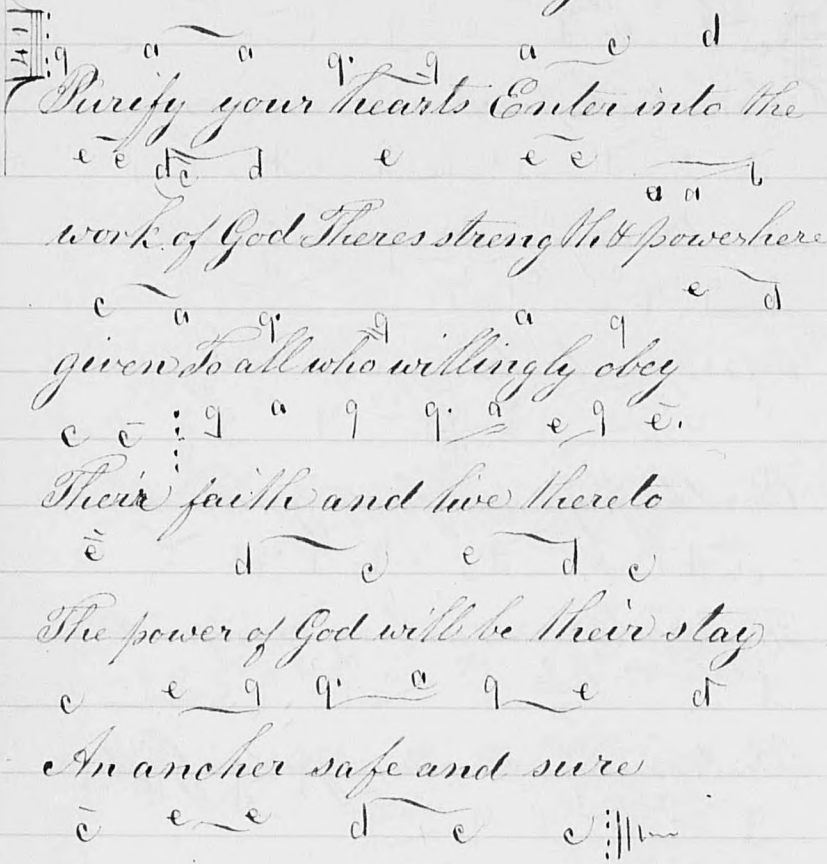 41
q a a q. q a c d
Purify your hearts Enter into the
e e d c d e e e a a b
work of God Theres strength & power here
c a q. q a q e d
given To all who willingly obey
c c q a q q. a e q e.
Their faith and live thereto
e d c e d c
The power of God will be their stay
c e q q. a q e d
An ancher safe and sure
c e e d c c